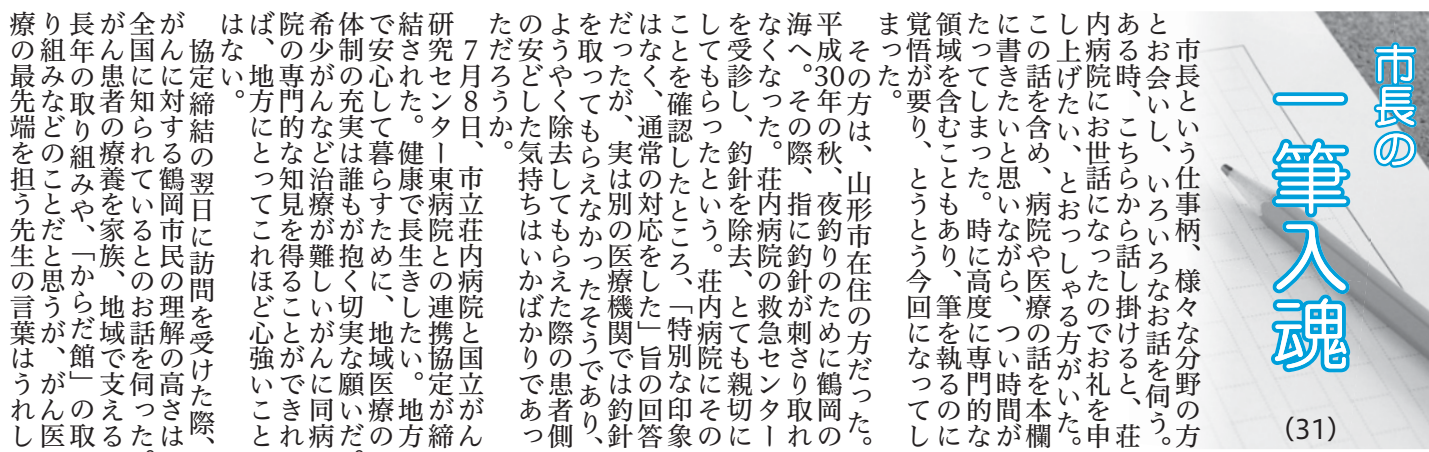 市長の
一筆入魂
(31)
　市長という仕事柄、様々な分野の方
とお会いし、いろいろなお話を伺う。
ある時、こちらから話し掛けると、荘
内病院にお世話になったのでお礼を申
し上げたい、とおっしゃる方がいた。
この話を含め、病院や医療の話を本欄
に書きたいと思いながら、つい時間が
たってしまった。時に高度に専門的な
領域を含むこともあり、筆を執るのに
覚悟が要り、とうとう今回になってし
まった。
　その方は、山形市在住の方だった。
平成30年の秋、夜釣りのために鶴岡の
海へ。その際、指に釣針が刺さり取れ
なくなった。荘内病院の救急センター
を受診し、釣針を除去、とても親切に
してもらったという。荘内病院にその
ことを確認したところ、「特別な印象
はなく、通常の対応をした」旨の回答
だったが、実は別の医療機関では釣針
を取ってもらえなかったそうであり、
ようやく除去してもらえた際の患者側
の安どした気持ちはいかばかりであっ
ただろうか。
　７月８日、市立荘内病院と国立がん
研究センター東病院との連携協定が締
結された。健康で長生きしたい。地方
で安心して暮らすために、地域医療の
体制の充実は誰もが抱く切実な願いだ。
希少がんなど治療が難しいがんに同病
院の専門的な知見を得ることができれ
ば、地方にとってこれほど心強いこと
はない。
　協定締結の翌日に訪問を受けた際、
がんに対する鶴岡市民の理解の高さは
全国に知られているとのお話を伺った。
がん患者の療養を家族、地域で支える
長年の取り組みや、「からだ館」の取
り組みなどのことだと思うが、がん医
療の最先端を担う先生の言葉はうれし